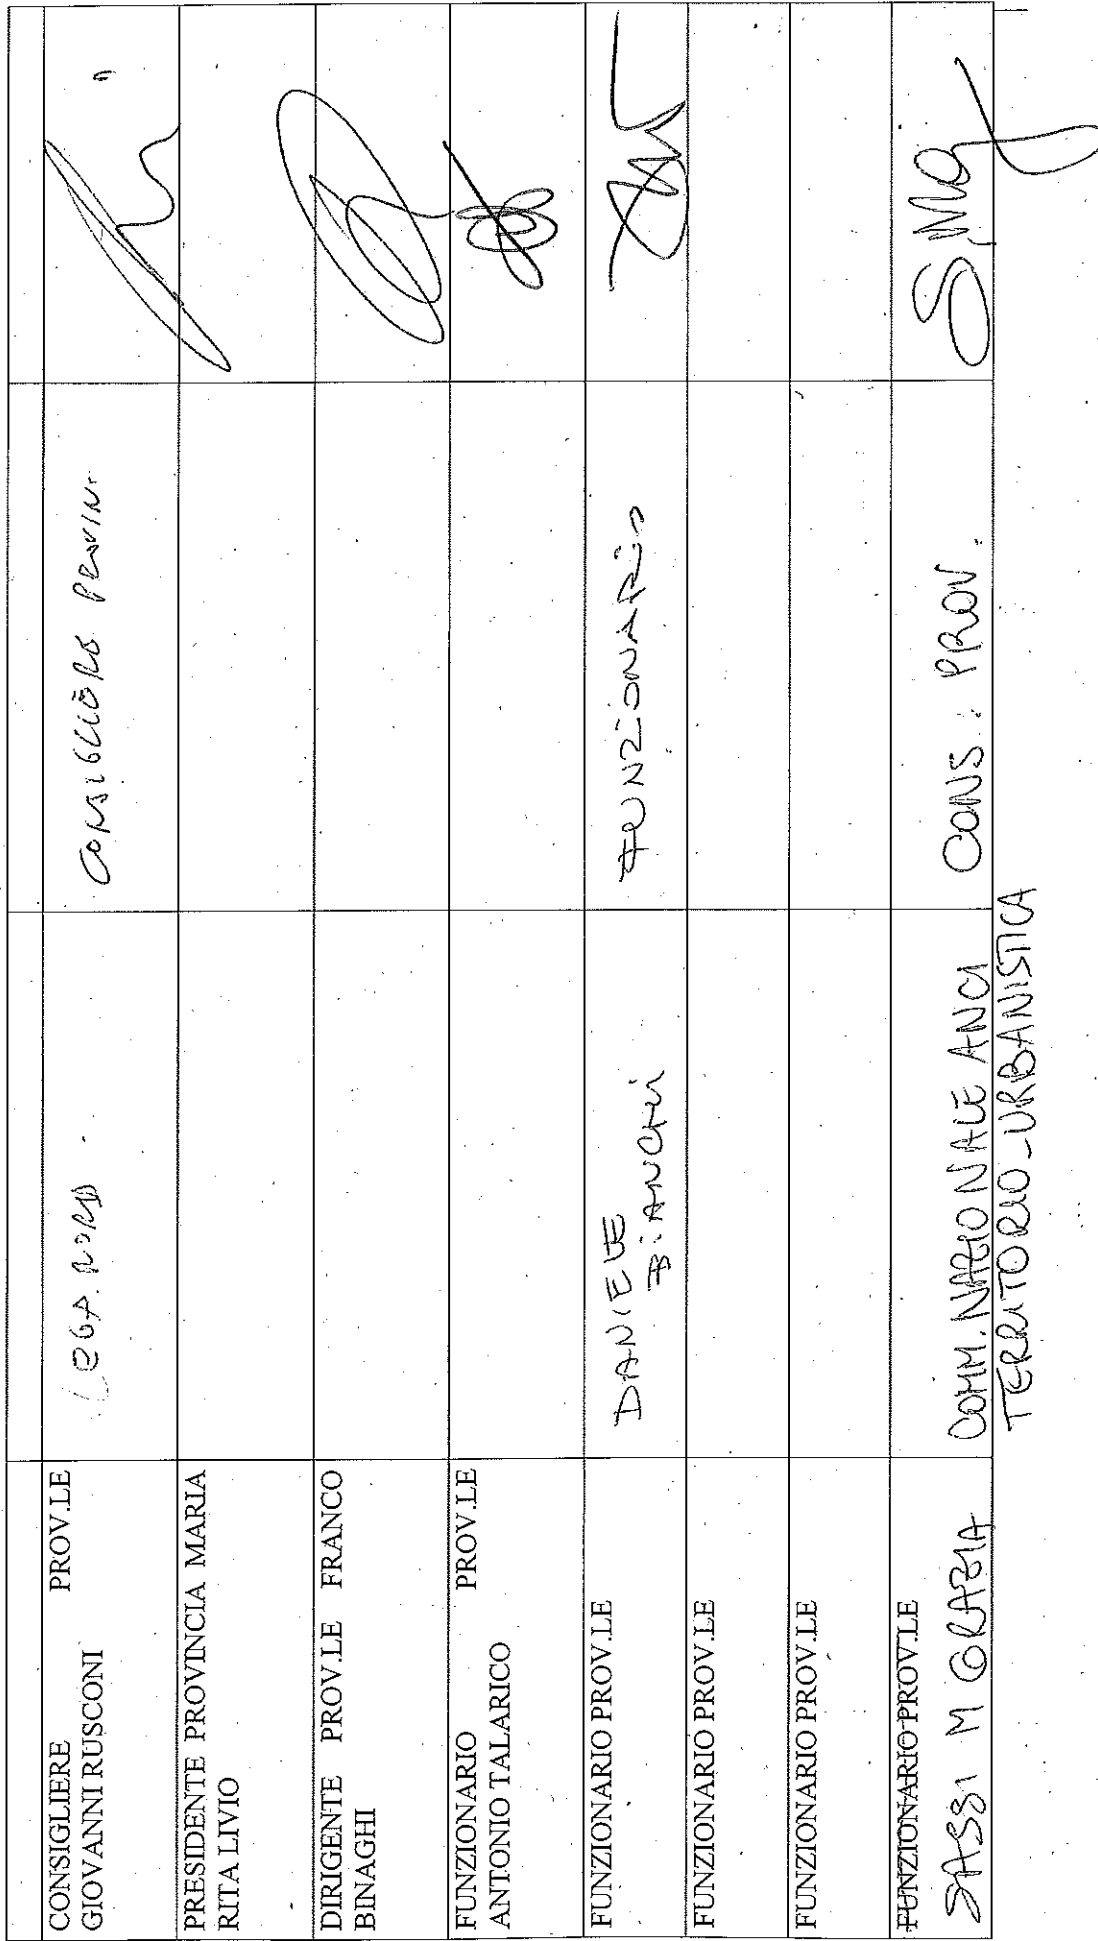 CONSIGLIERE PROV.LE
GIOVANNI RUSCONI
LEGA NORD
CONSIGLIERE PROVIN.
PRESIDENTE PROVINCIA MARIA
RITA LIVIO
DIRIGENTE PROV.LE FRANCO
BINAGHI
FUNZIONARIO PROV.LE
ANTONIO TALARICO
FUNZIONARIO PROV.LE
DANIELE
BIANCHI
FUNZIONARIO
FUNZIONARIO PROV.LE
FUNZIONARIO PROV.LE
FUNZIONARIO PROV.LE
SASSI M GRAZIA
COMM. NAZIONALE ANCI
TERRITORIO-URBANISTICA
CONS. PROV.